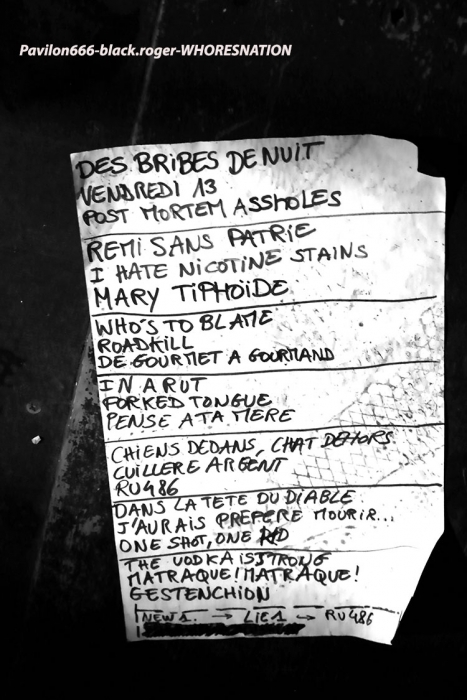 Pavilon666-black.roger-WHORESNATION
DES BRIBES DE NUIT
VENDREDI 13
POST MORTEM ASSHOLES
REMI SANS PATRIE
I HATE NICOTINE STAINS
MARY TIPHOÏDE
WHO'S TO BLAME
ROADKILL
DE GOURMET A GOURMAND
IN A RUT
FORKED TONGUE
PENSE A TA MERE
CHIENS DEDANS, CHAT DEHORS
CUILLERE ARGENT
RU486
DANS LA TETE DU DIABLE
J'AURAIS PREFERE MOURIR...
ONE SHOT, ONE
THE VODKA IS STRONG
MATRAQUE! MATRAQUE!
GESTENCHION
NEWS 1. → LIE 1 → RU486